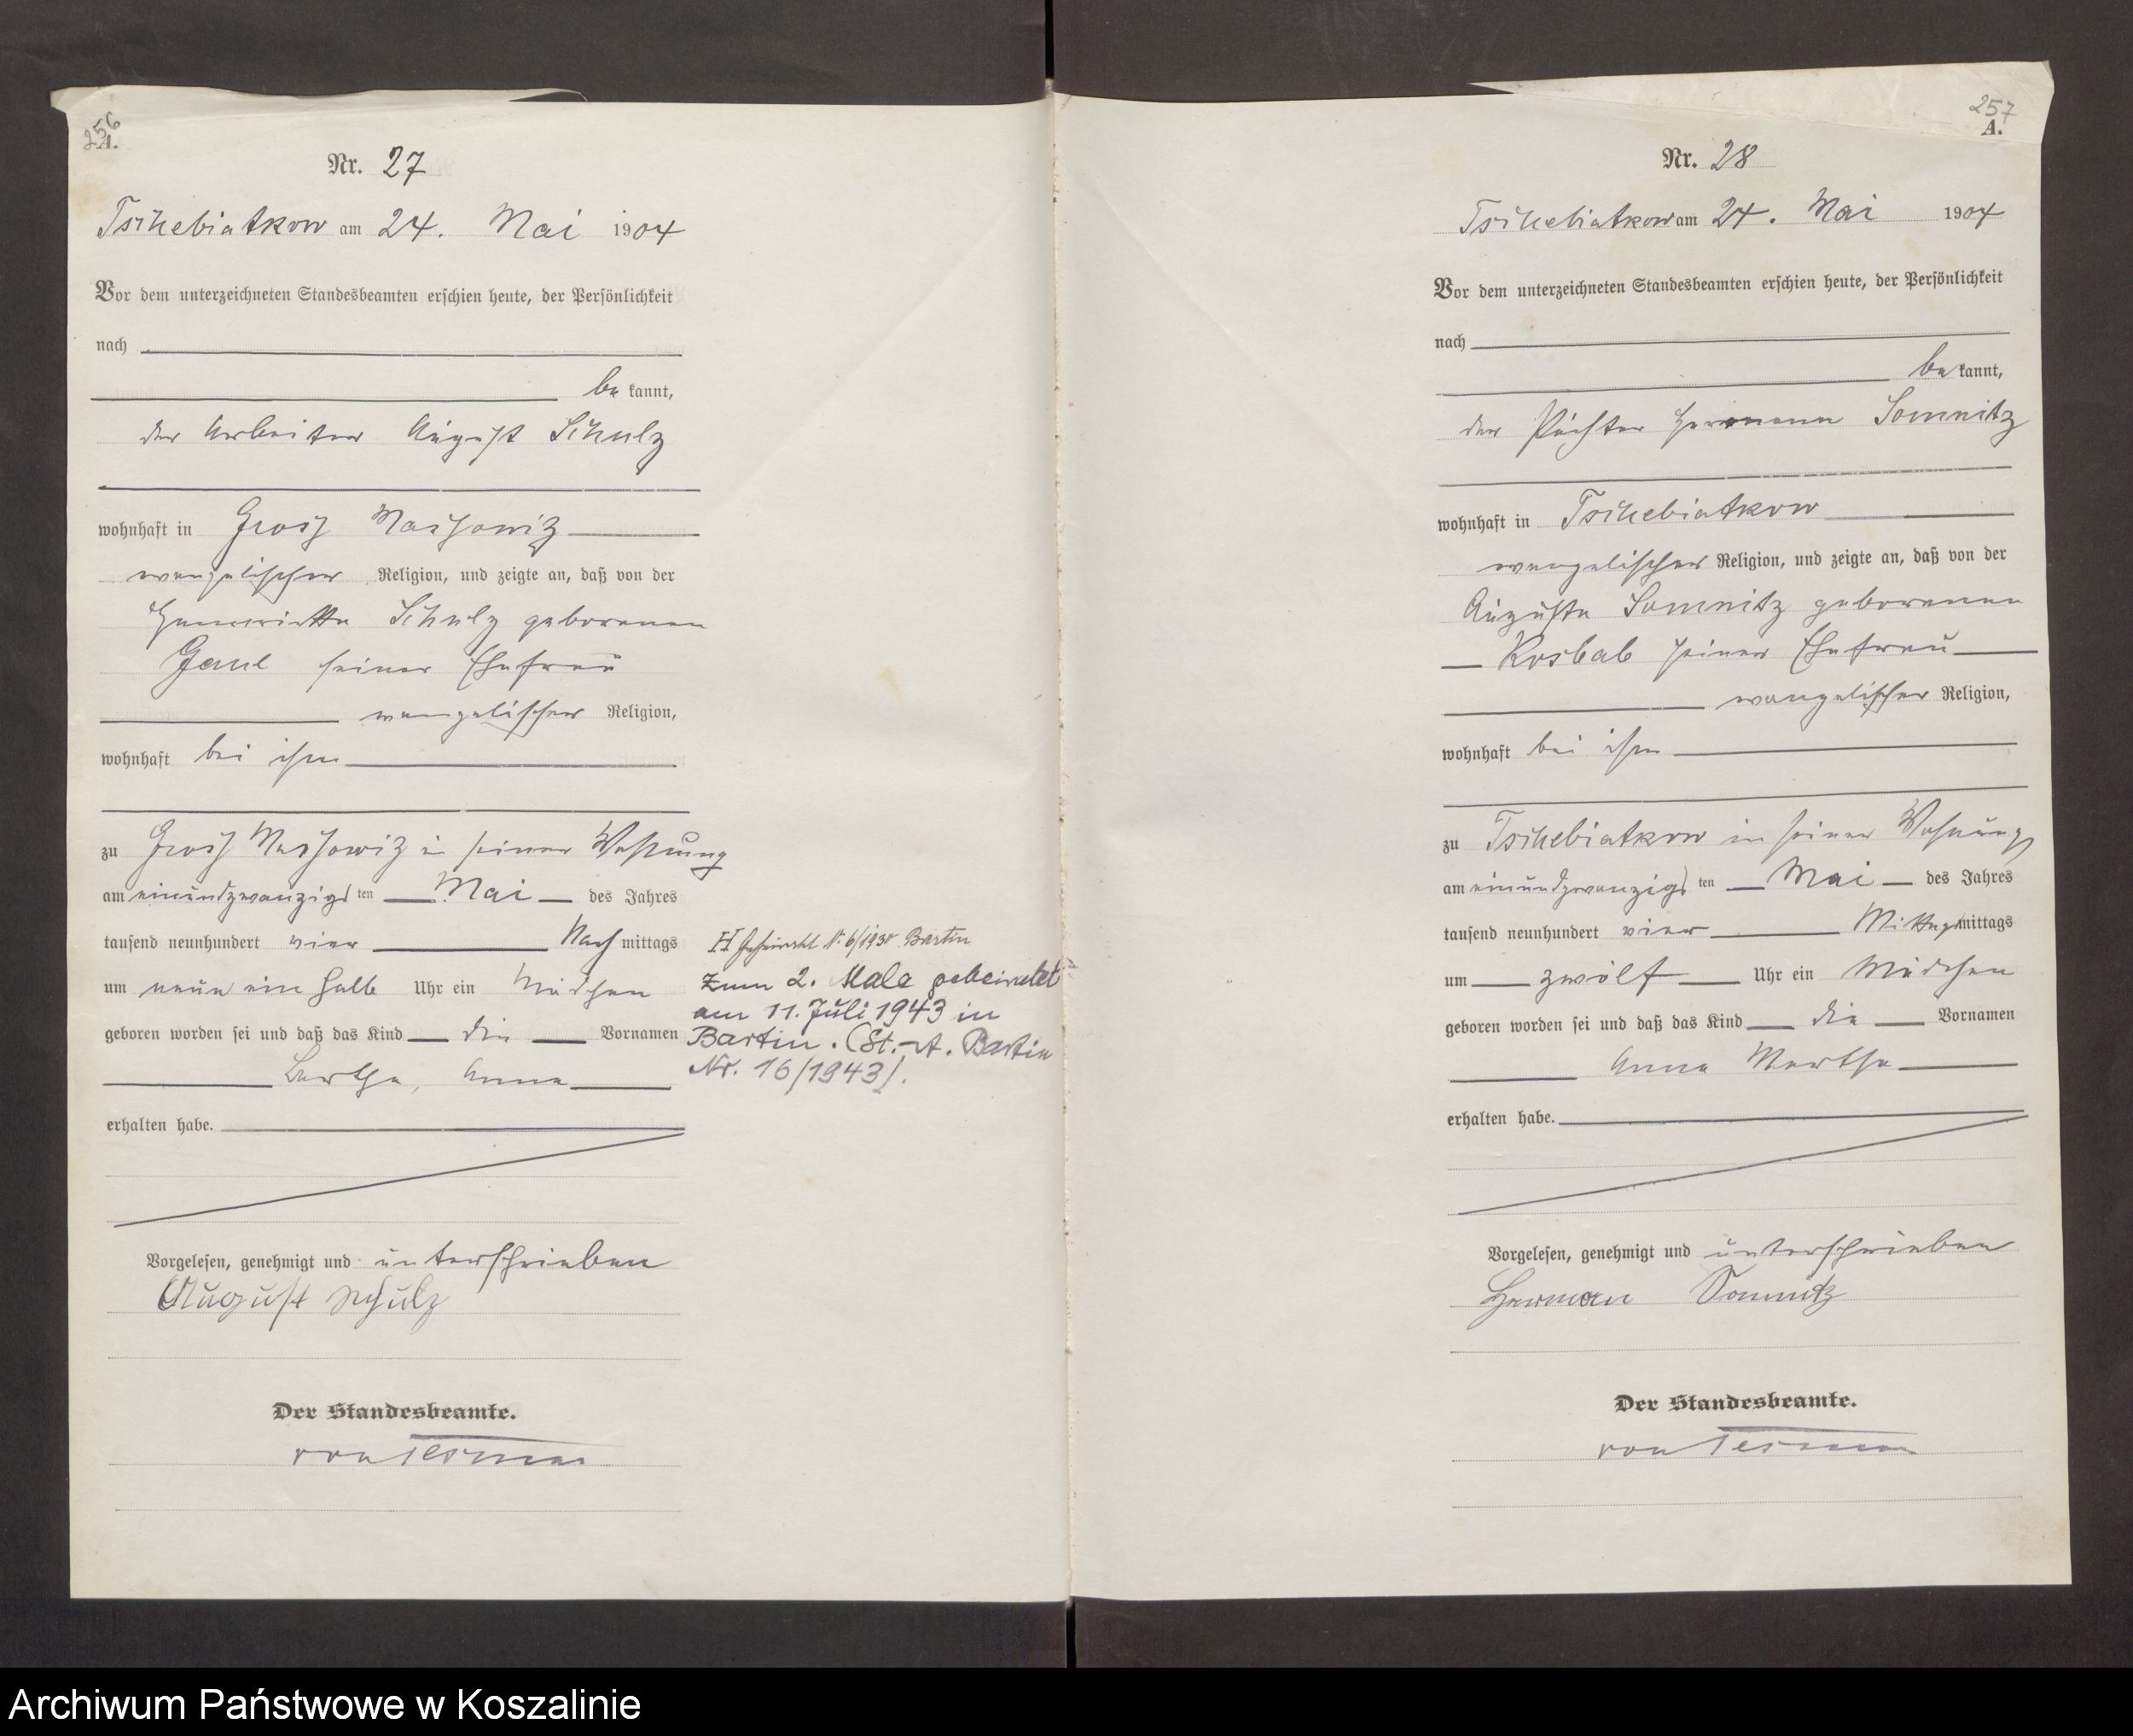 256
A.
Nr. 27
Tschebiatkow am 24. Mai 1904
Vor dem unterzeichneten Standesbeamten erschien heute, der Persönlichkeit
nach
be kannt,
der Arbeiter August Schulz
wohnhaft in Gross Massowiz
evangelischer Religion, und zeigte an, daß von der
Henriette Schulz geborenen
Gaul seiner Ehefrau
evangelischer Religion,
wohnhaft bei ihm
zu Gross Massowiz in seiner Wohnung
am einundzwanzigs ten Mai des Jahres
tausend neunhundert vier Nach mittags
um neun ein halb Uhr ein Mädchen
geboren worden sei und daß das Kind die Vornamen
Bertha, Anna
erhalten habe.
Vorgelesen, genehmigt und unterschrieben
August Schulz
Der Standesbeamte.
von
H Nr. 6/193 Bartin
Zum 2. Male geheiratet
am 11. Juli 1943 in
Bartin. (St.-A. Bartin
Nr. 16/1943).
257
A.
Nr. 28
Tschebiatkow am 24. Mai 1904
Vor dem unterzeichneten Standesbeamten erschien heute, der Persönlichkeit
nach
be kannt,
der Pächter Hermann Somnitz
wohnhaft in Tschebiatkow
evangelischer Religion, und zeigte an, daß von der
Auguste Somnitz geborenen
Kosbab seiner Ehefrau
evangelischer Religion,
wohnhaft bei ihm
zu Tschebiatkow in seiner Wohnung
am einundzwanzigs ten Mai des Jahres
tausend neunhundert vier Mittags mittags
um zwölf Uhr ein Mädchen
geboren worden sei und daß das Kind die Vornamen
Anna Martha
erhalten habe.
Vorgelesen, genehmigt und unterschrieben
Herman Somnitz
Der Standesbeamte.
von
Archiwum Państwowe w Koszalinie